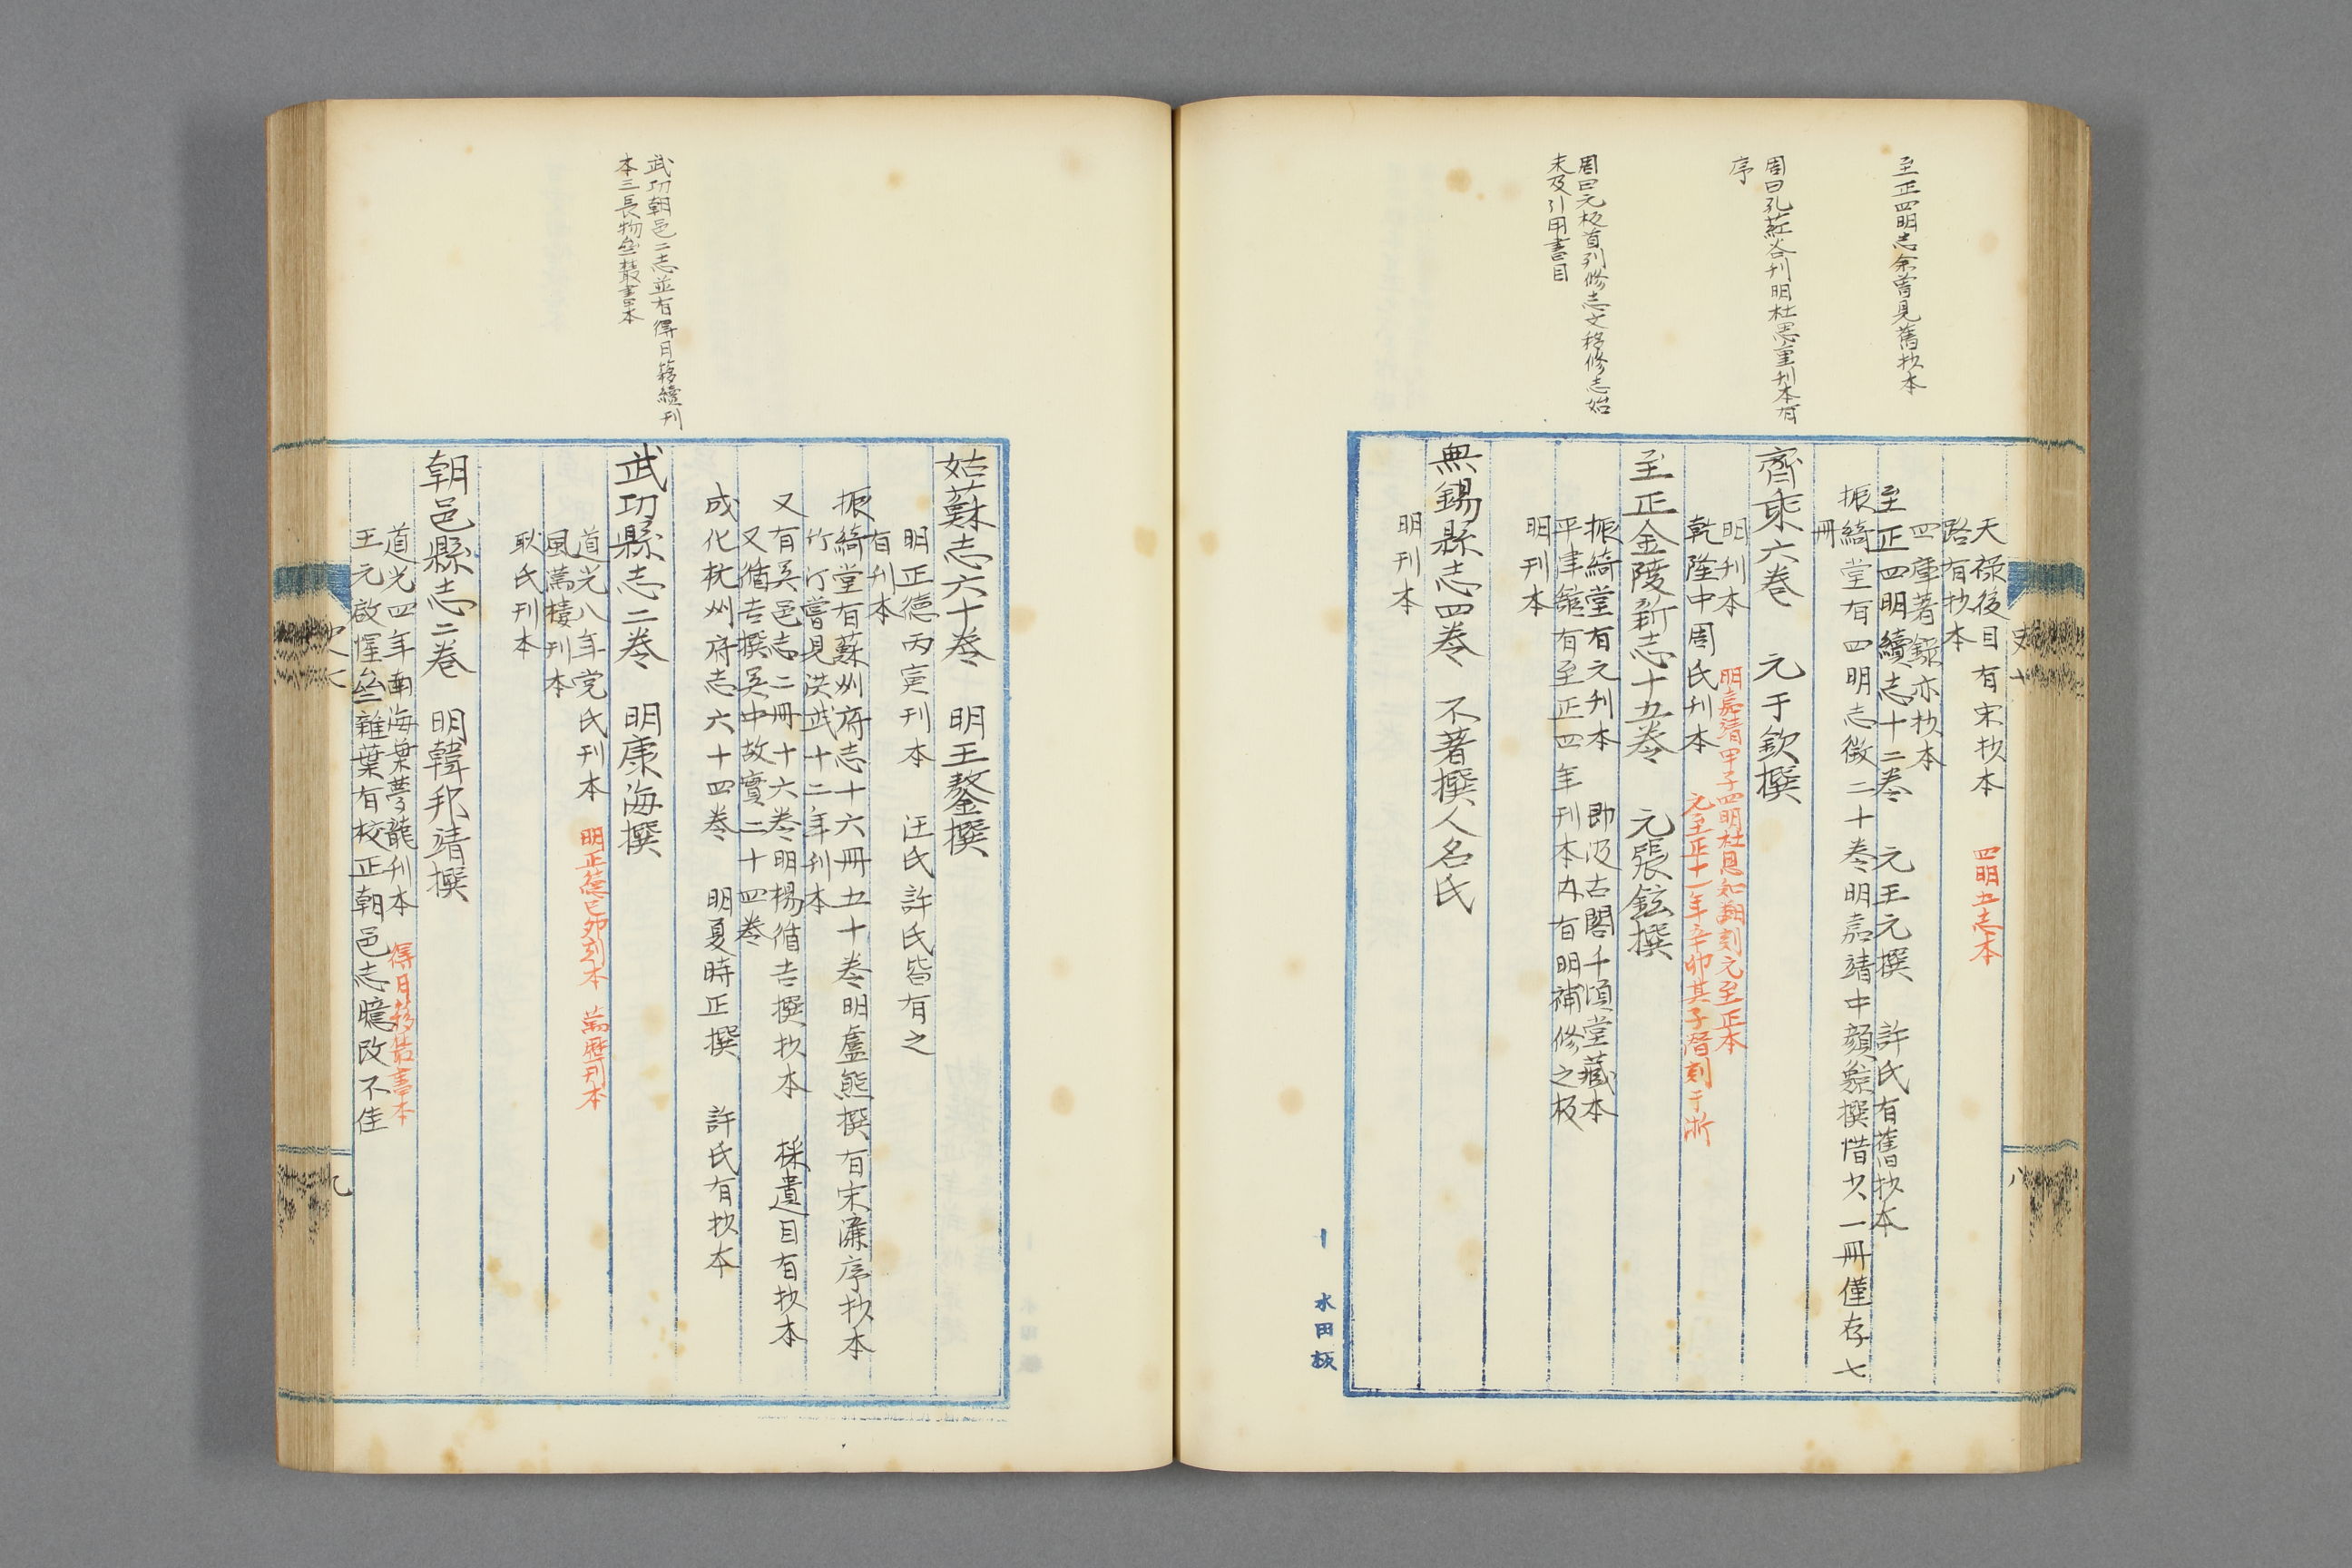 至正四明志余嘗見舊抄本
周曰孔葒谷刊明杜思重刊本有
序
周曰元板首列修志文移修志始
末及引用書目
天祿後目有宋抄本 四明五志本
路有抄本
四庫著錄亦抄本
至正四明續志十二卷 元王元撰 許氏有舊抄本
振綺堂有四明志徵二十卷明嘉靖中顏鯨撰惜少一冊僅存七
冊
齊乘六卷 元于欽撰
明刊本 明嘉靖甲子四明杜思知郡刻元至正本
乾隆中周氏刊本 元至正十一年辛卯其子潛刻于浙
至正金陵新志十五卷 元張鉉撰
振綺堂有元刊本 即汲古閣千頃堂藏本
平津館有至正四年刊本內有明補修之板
明刊本
無錫縣志四卷 不著撰人名氏
明刊本
史十
八
水田板
武功朝邑二志並有得月簃續刊
本三長物亝叢書本
姑蘇志六十卷 明王鏊撰
明正德丙寅刊本 汪氏許氏皆有之
有刊本
振綺堂有蘇州府志十六冊五十卷明盧熊撰有宋濂序抄本
竹汀嘗見洪武十二年刊本
又有吳邑志二冊十六卷明楊循吉撰抄本 採遺目有抄本
又循吉撰吳中故實二十四卷
成化杭州府志六十四卷 明夏時正撰 許氏有抄本
武功縣志二卷 明康海撰
道光八年党氏刊本 明正德己卯刻本 萬歷刊本
風蕭樓刊本
耿氏刊本
朝邑縣志二卷 明韓邦靖撰
道光四年南海葉夢龍刊本 得月簃叢書本
王元啟惺亝雜葉有校正朝邑志臆改不佳
九